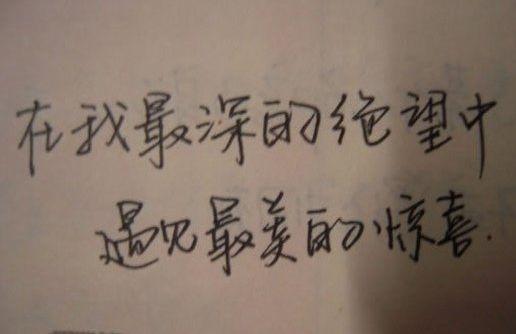 在我最深的绝望中
遇见最美的惊喜.